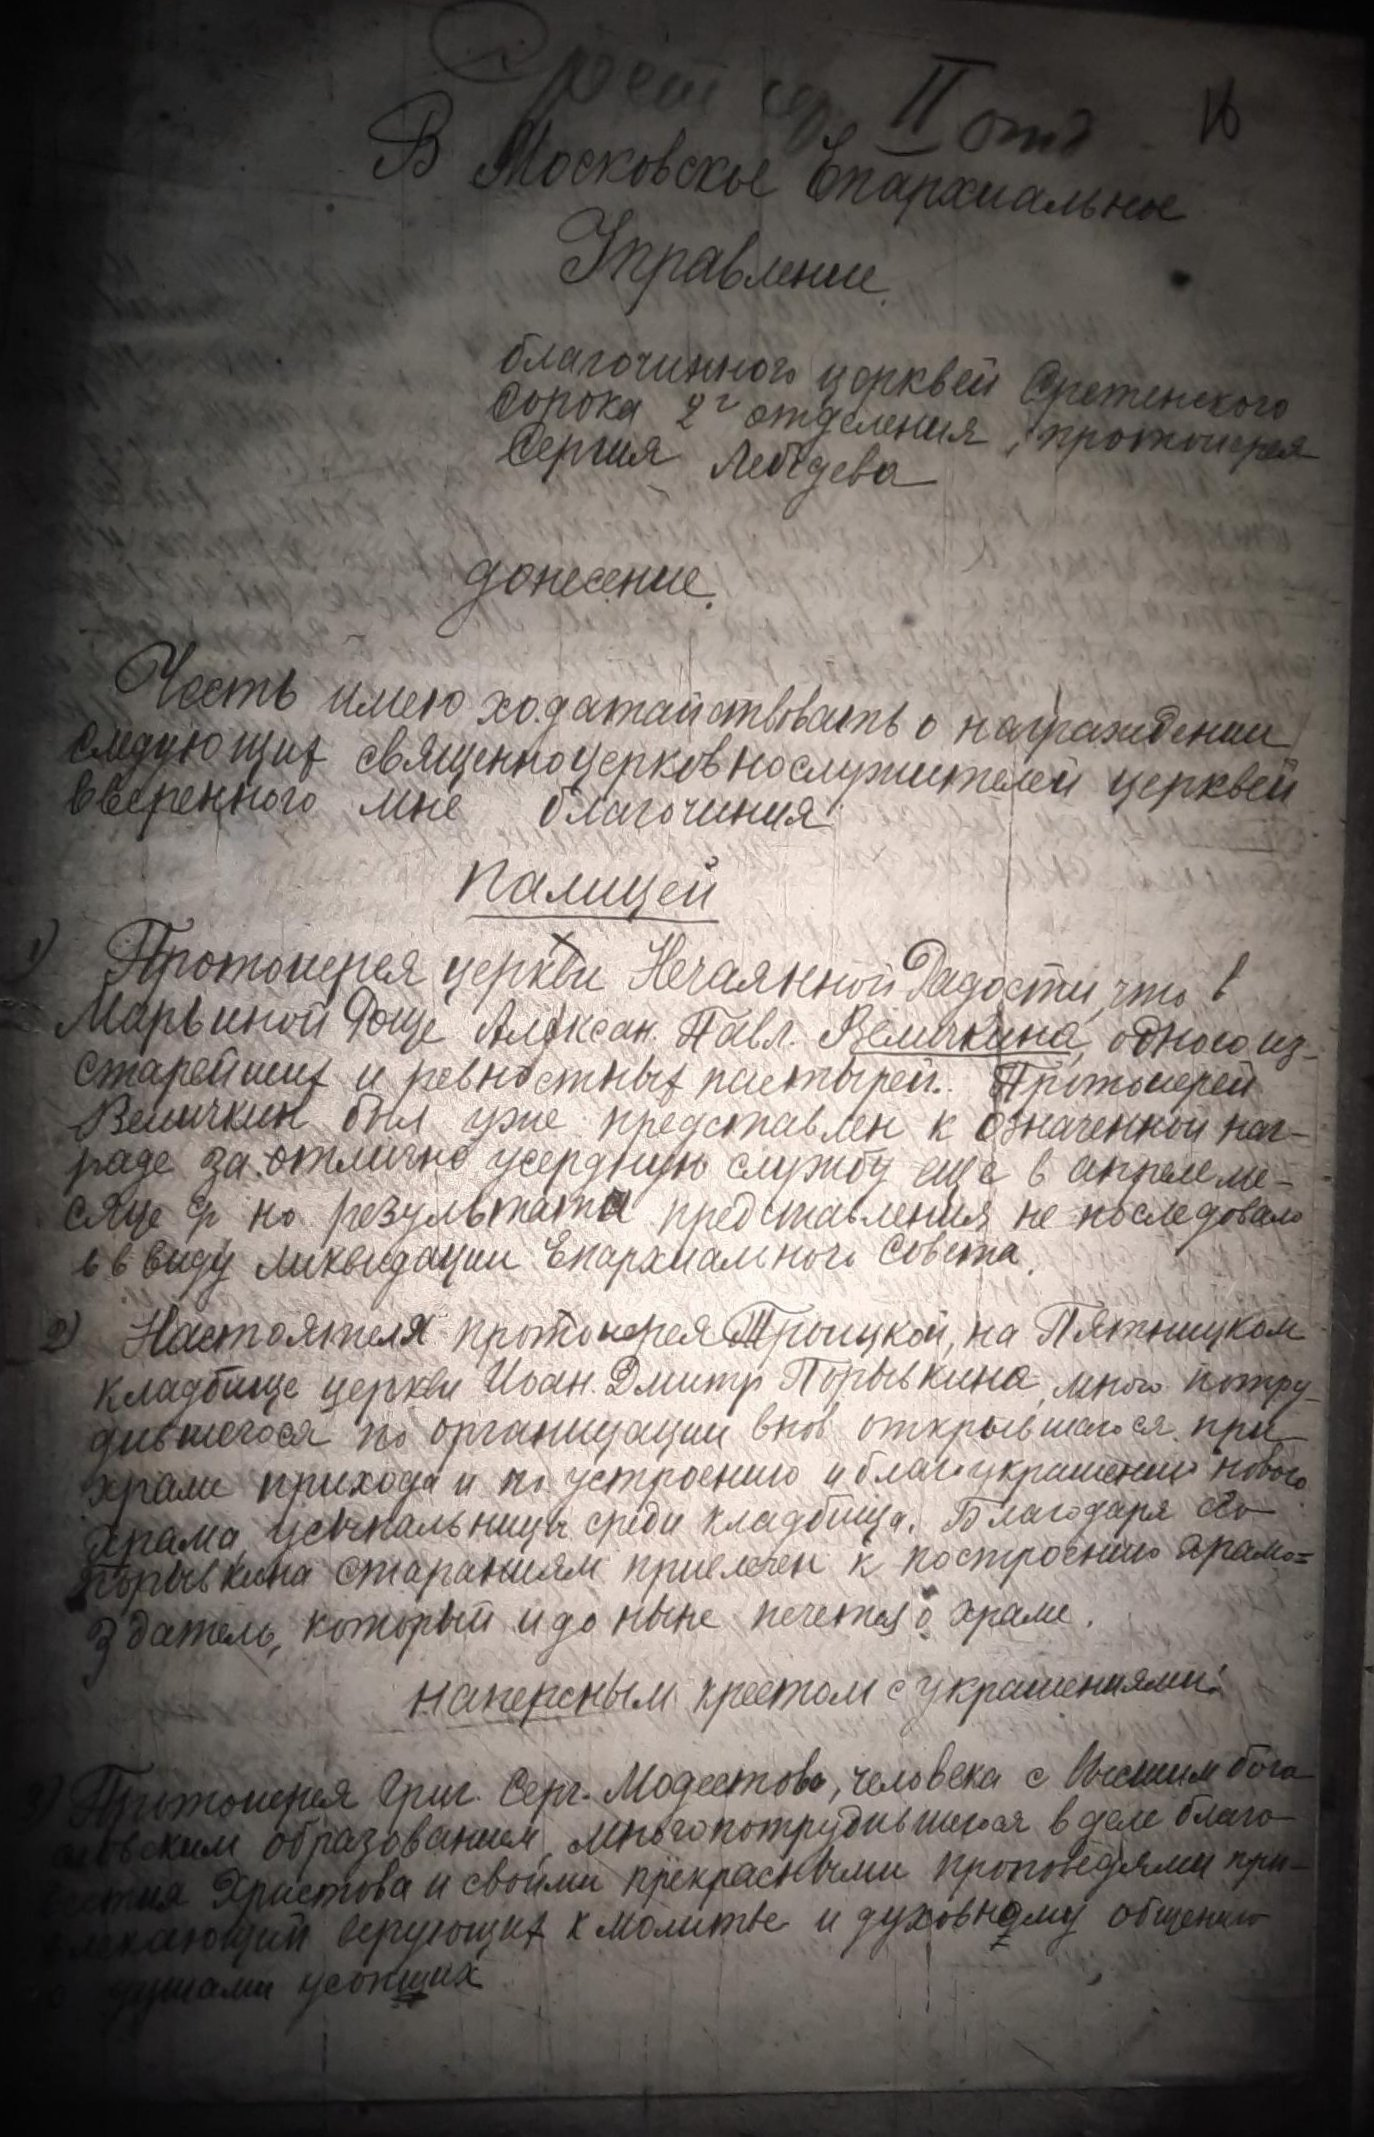 II отд
16
В Московское Епархиальное
Управление.
благочинного церквей Сретенского
Сорока 2го отделения, протоиерея
Сергия Лебедева
донесение.
Честь имею ходатайствовать о награждении
следующих священноцерковнослужителей церквей
вверенного мне благочиния
Палицей
1) Протоиерея церкви Нечаянной Радости, что в
Марьиной Роще Алексан. Павл. Величкина, одного из
старейших и ревностных пастырей. Протоиерей
Величкин был уже представлен к означенной наг-
раде за отлично усердную службу еще в апреле ме-
сяце но результата представления не последовало
в виду ликвидации Епархиального Совета.
2) Настоятеля протоиерея Троицкой, на Пятницком
кладбище церкви Иоан. Дмитр Порывкина, много потру-
дившегося по организации внов открывшагося при
храме прихода и по устроению и благоукрашению нового
храма усыпальницы среди кладбища. Благодаря его
Порывкина стараниям привлечен к построению храмо=
здатель, который и до ныне печется о храме.
наперсным крестом с украшениями:
3) Протоиерея Григ. Серг. Модестова, человека с высшим бого
словским образованием, многопотрудившегося в деле благо-
вестия Христова и своими прекрасными проповедями при-
влекающий верующих к молитве и духовному общению
с душами усопших